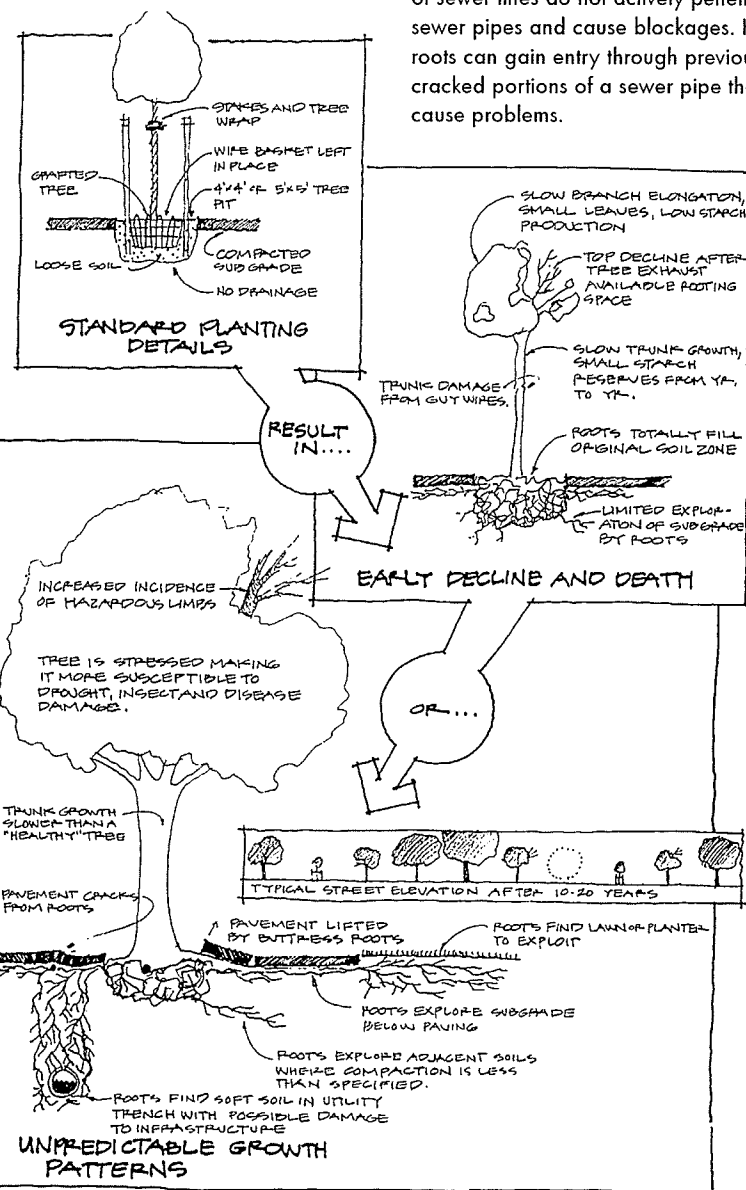 sewer pipes and cause blockages.
roots can gain entry through
cracked portions of a sewer pipe
cause problems.
STAKES AND TREE
WRAP
WIRE BASKET LEFT
IN PLACE
GRAFTED
TREE
4'x4' OR 5'x5' TREE
PIT
LOOSE SOIL
COMPACTED
SUBGRADE
NO DRAINAGE
STANDARD PLANTING
DETAILS
RESULT
IN....
SLOW BRANCH ELONGATION,
SMALL LEAVES, LOW STARCH
PRODUCTION
TOP DECLINE AFTER
TREE EXHAUST
AVAILABLE ROOTING
SPACE
SLOW TRUNK GROWTH,
SMALL STARCH
RESERVES FROM YR.
TO YR.
TRUNK DAMAGE
FROM GUY WIRES.
ROOTS TOTALLY FILL
ORIGINAL SOIL ZONE
LIMITED EXPLOR-
ATION OF SUBGRADE
BY ROOTS
EARLY DECLINE AND DEATH
OR...
INCREASED INCIDENCE
OF HAZARDOUS LIMBS
TREE IS STRESSED MAKING
IT MORE SUSCEPTIBLE TO
DROUGHT, INSECT AND DISEASE
DAMAGE.
TRUNK GROWTH
SLOWER THAN A
"HEALTHY" TREE
PAVEMENT CRACKS
FROM ROOTS
TYPICAL STREET ELEVATION AFTER 10-20 YEARS
PAVEMENT LIFTED
BY BUTTRESS ROOTS
ROOTS FIND LAWN OR PLANTER
TO EXPLOIT
ROOTS EXPLORE SUBGRADE
BELOW PAVING
ROOTS EXPLORE ADJACENT SOILS
WHERE COMPACTION IS LESS
THAN SPECIFIED.
ROOTS FIND SOFT SOIL IN UTILITY
TRENCH WITH POSSIBLE DAMAGE
TO INFRASTRUCTURE
UNPREDICTABLE GROWTH
PATTERNS